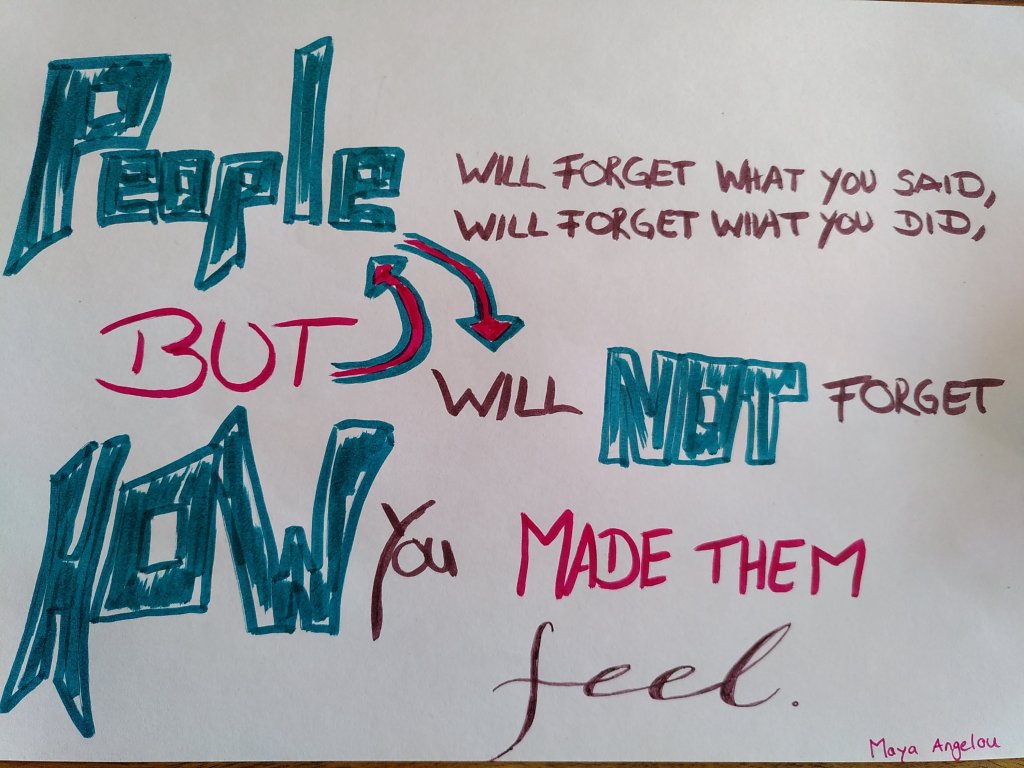 People WILL FORGET WHAT YOU SAID,
WILL FORGET WHAT YOU DID,
BUT WILL NOT FORGET
HOW You MADE THEM
feel.
Maya Angelou